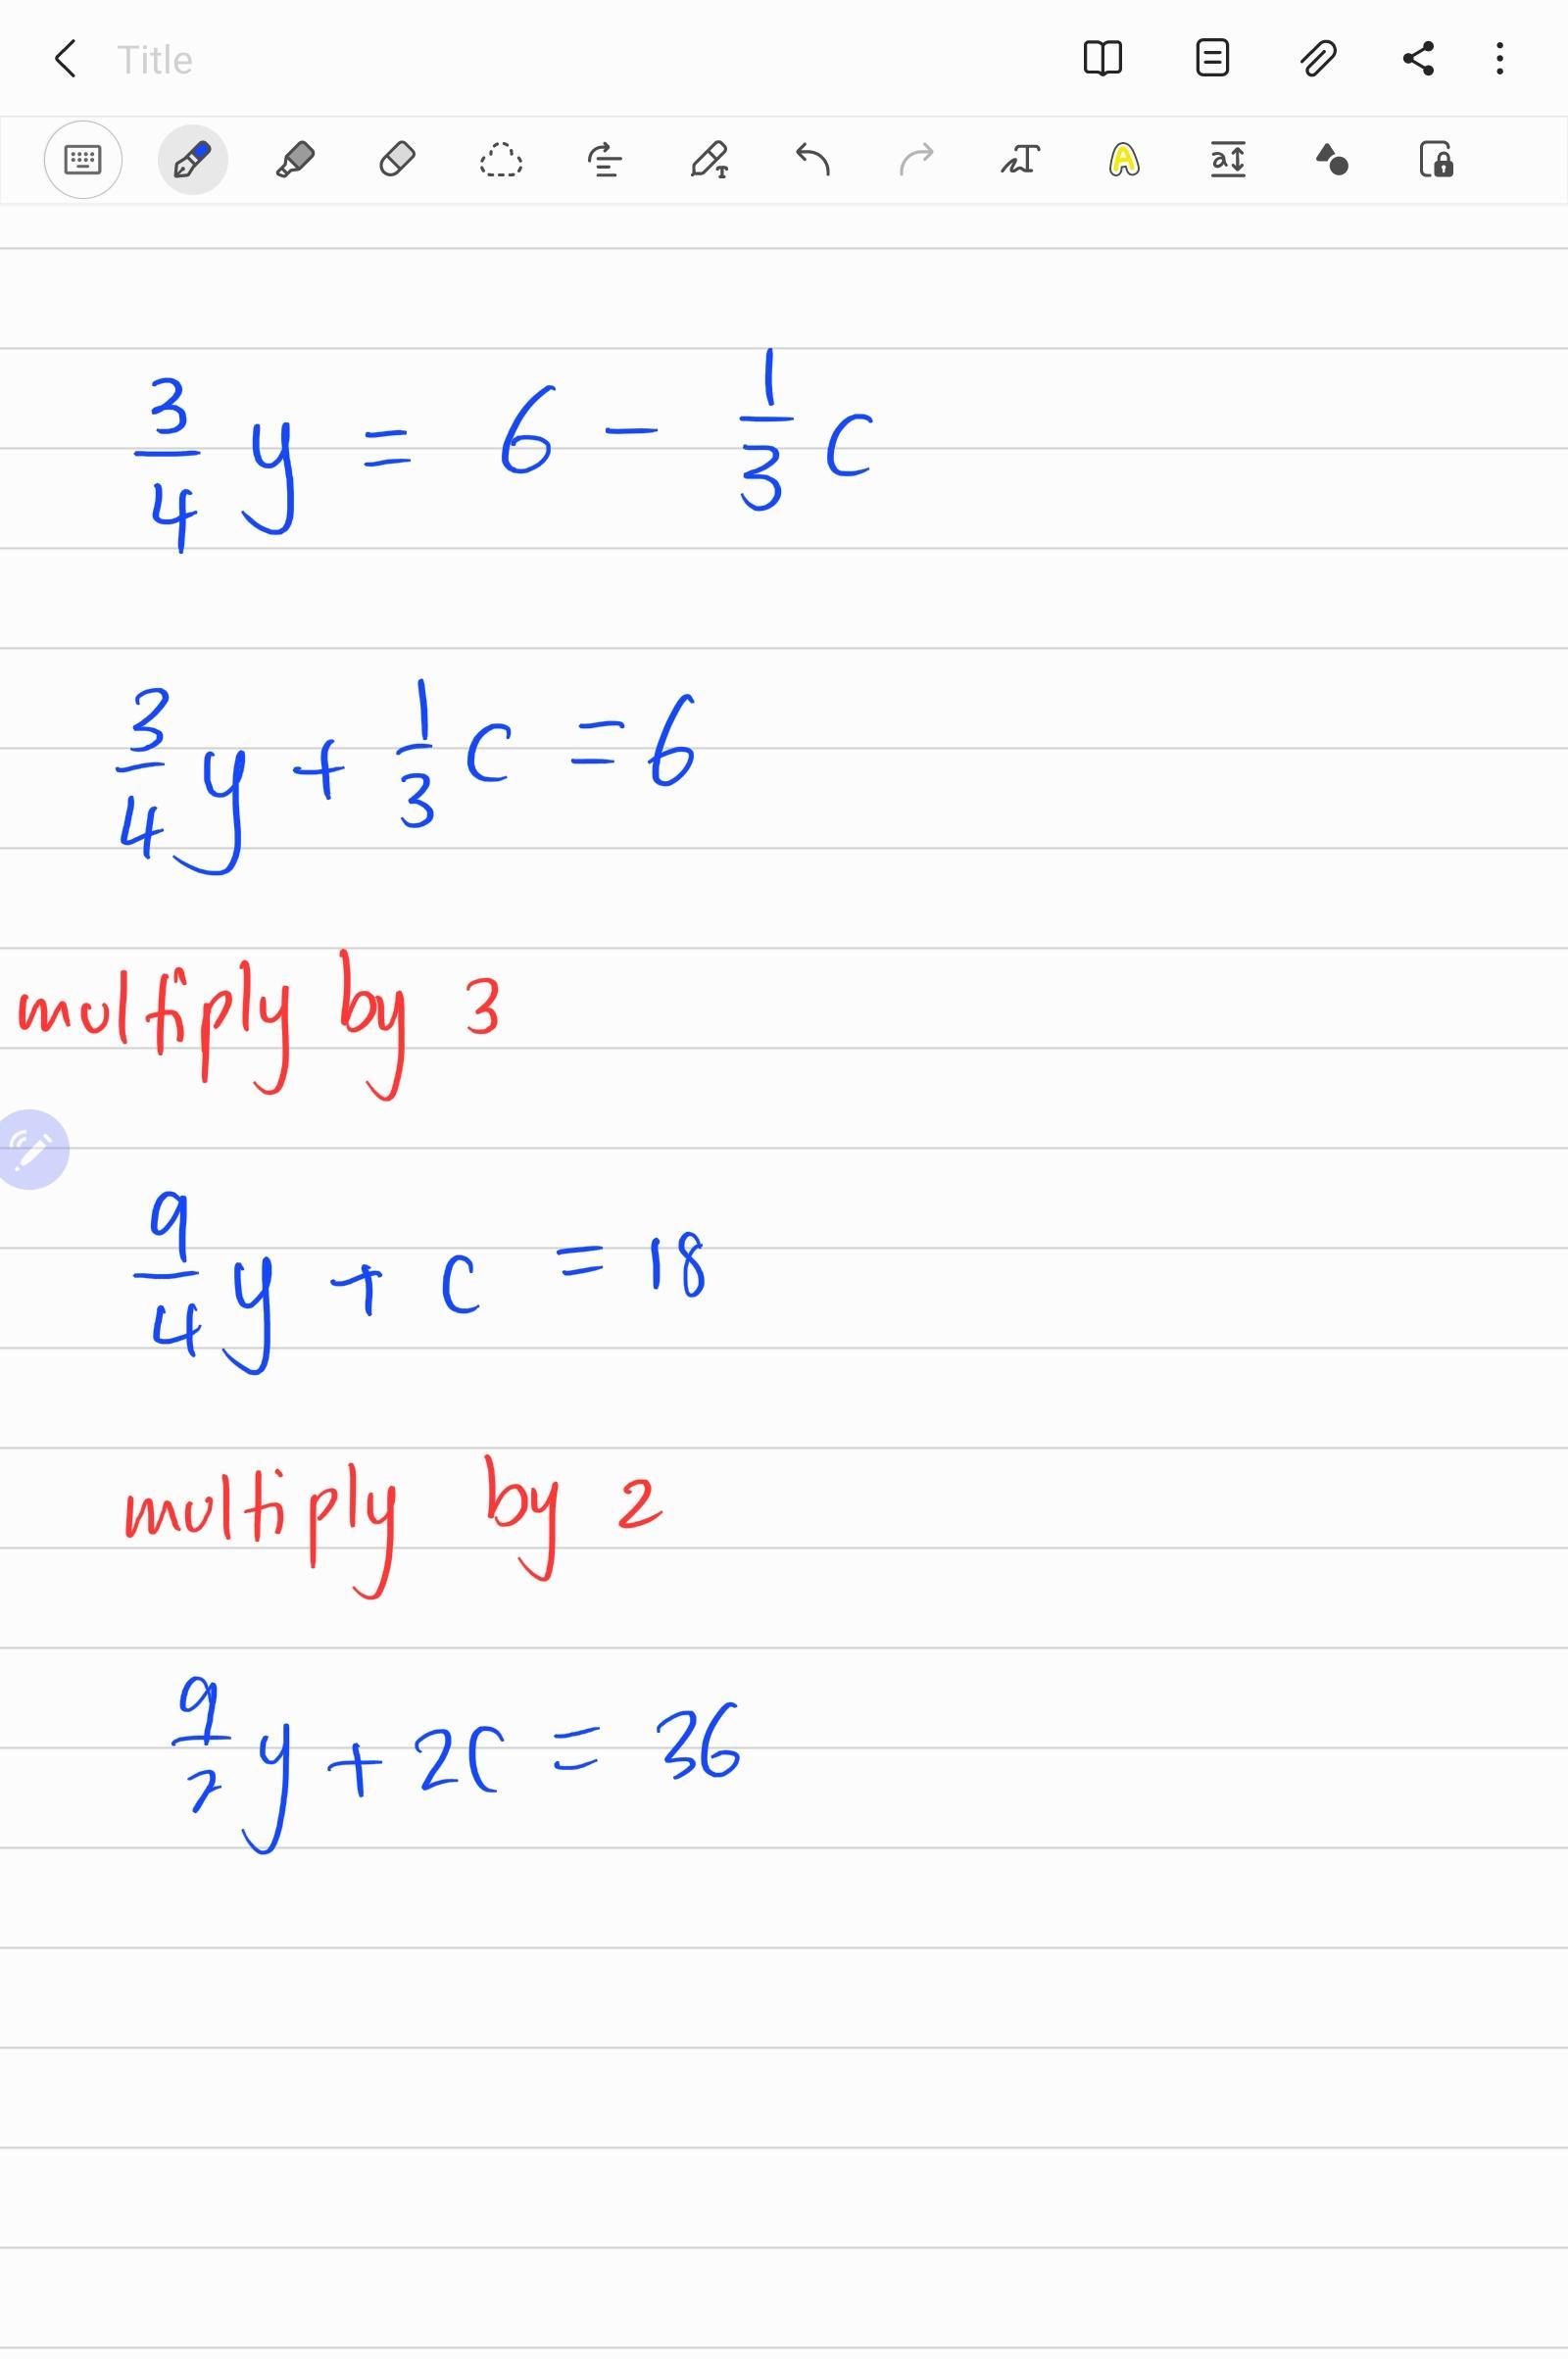 Title
3/4 y = 6 - 1/3 c
3/4 y + 1/3 c = 6
multiply by 3
9/4 y + c = 18
multiply by 2
9/2 y + 2c = 36